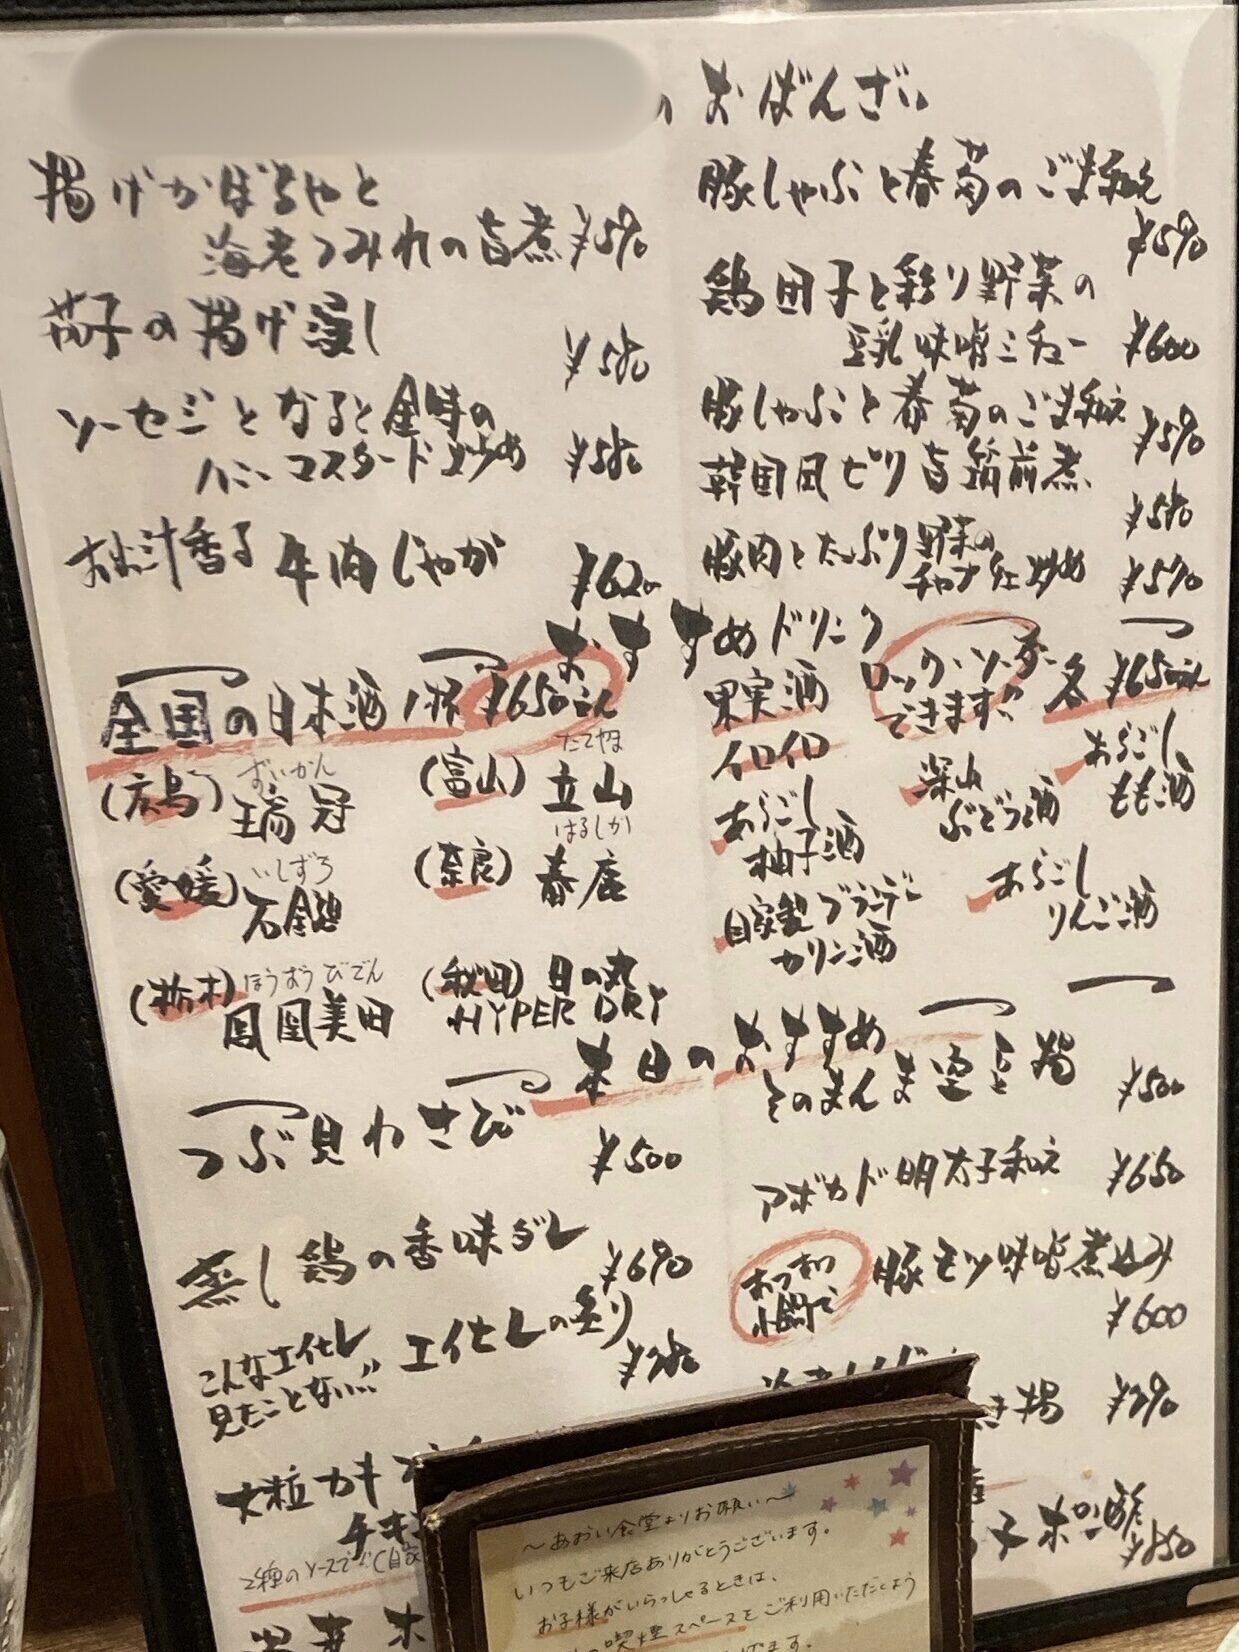 のおばんざい
揚げかぼちゃと
海老つみれの旨煮 ¥590
茄子の揚げ浸し
¥580
ソーセジとなると金時の
ハニーマスタード炒め ¥580
お出汁香る 牛肉じゃが
¥620
豚しゃぶと春菊のごま和え
¥590
鶏団子と彩り野菜の
豆乳味噌シチュー ¥600
豚しゃぶと春菊のごま和え
¥590
韓国風ピリ旨筑前煮
¥580
豚肉とたっぷり野菜の
チャプチェ炒め ¥570
おすすめドリンク
全国の日本酒 1杯 ¥650
(広島) ずいかん
瑞冠
(富山) たてやま
立山
(愛媛) いしずち
石鎚
(奈良) はるしか
春鹿
(栃木) ほうおうびでん
鳳凰美田
(秋田) 日の丸
HYPER DRY
果実酒
イロイロ
ロック・ソーダー
できます!!
各 ¥650
あらごし
柚子酒
深山
ぶどう酒
あらごし
もも酒
自家製ブランデー
カリン酒
あらごし
りんご酒
本日のおすすめ
つぶ貝わさび
¥500
蒸し鶏の香味ダレ
¥690
こんなエイヒレ
見たことない!!
エイヒレの炙り
¥780
大粒カキ
2種のソースで!!(自家
そのまんま空豆揚
¥500
アボカド明太子和え
¥650
あつあつ
小鍋で
豚モツ味噌煮込み
¥600
き揚 ¥790
子ポン酢
¥850
～あおい食堂よりお願い～
いつもご来店ありがとうございます。
お子様がいらっしゃるときは、
の喫煙スペースをご利用いただくよう
げます。